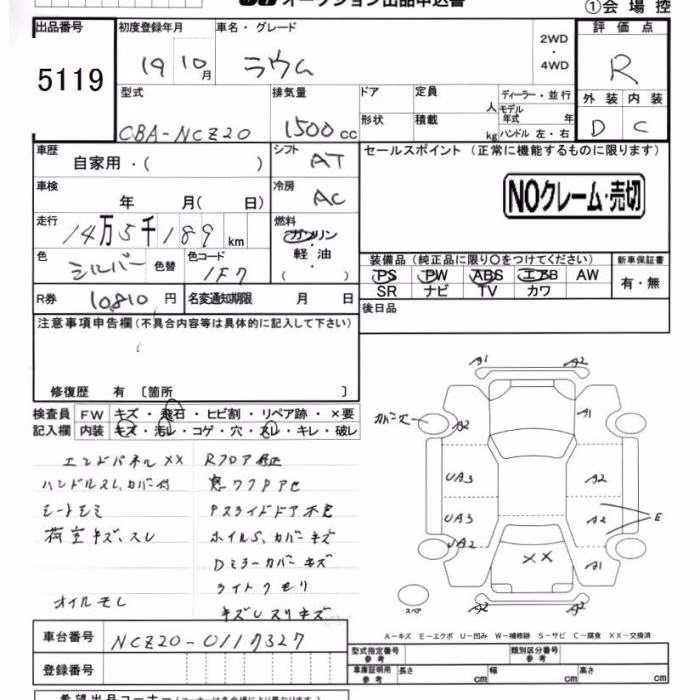 オークション出品申込書
①会場控
出品番号
5119
初度登録年月
19 10月
車名・グレード
ラウム
2WD
・
4WD
評価点
R
外装 内装
D C
型式
CBA-NCZ20
排気量
1500cc
ドア
定員 人
形状
積載 kg
ディーラー・並行
モデル年式 年
ハンドル 左・右
車歴
自家用・( )
シフト
AT
車検
年 月( 日)
冷房
AC
走行
14万5千189km
燃料
ガソリン
軽油
・
( )
色
シルバー
色替
色コード
1F7
R券 10,810円
名変通知期限 月 日
セールスポイント(正常に機能するものに限ります)
NOクレーム・売切
装備品(純正品に限り○をつけてください)
PS PW ABS エアB AW
SR ナビ TV カワ
新車保証書
有・無
後日品
注意事項申告欄(不具合内容等は具体的に記入して下さい)
修復歴 有〔箇所 〕
検査員記入欄
FW キズ・飛石・ヒビ割・リペア跡・×要
内装 キズ・汚レ・コゲ・穴・スレ・キレ・破レ
エンドパネルXX
Rフロア修正
ハンドルスレ、カバー付
シートモミ
Pスライドドア不良
荷室キズ、スレ
ホイルS、カバーキズ
Dミラーカバーキズ
ライトクモリ
オイルモレ
キズUスリキズ
A1 A2
カバーキズ A2 A1
UA3 A2
UA3 A2 E
UA2 XX A1
スペア A2 A2
A-キズ E-エクボ U-凹み W-補修跡 S-サビ C-腐食 XX-交換済
車台番号
NCZ20-0117327
登録番号
型式指定番号
参考
類別区分番号
参考
車庫証明用
参考
長さ cm
幅 cm
高さ cm
希望出品コーナー